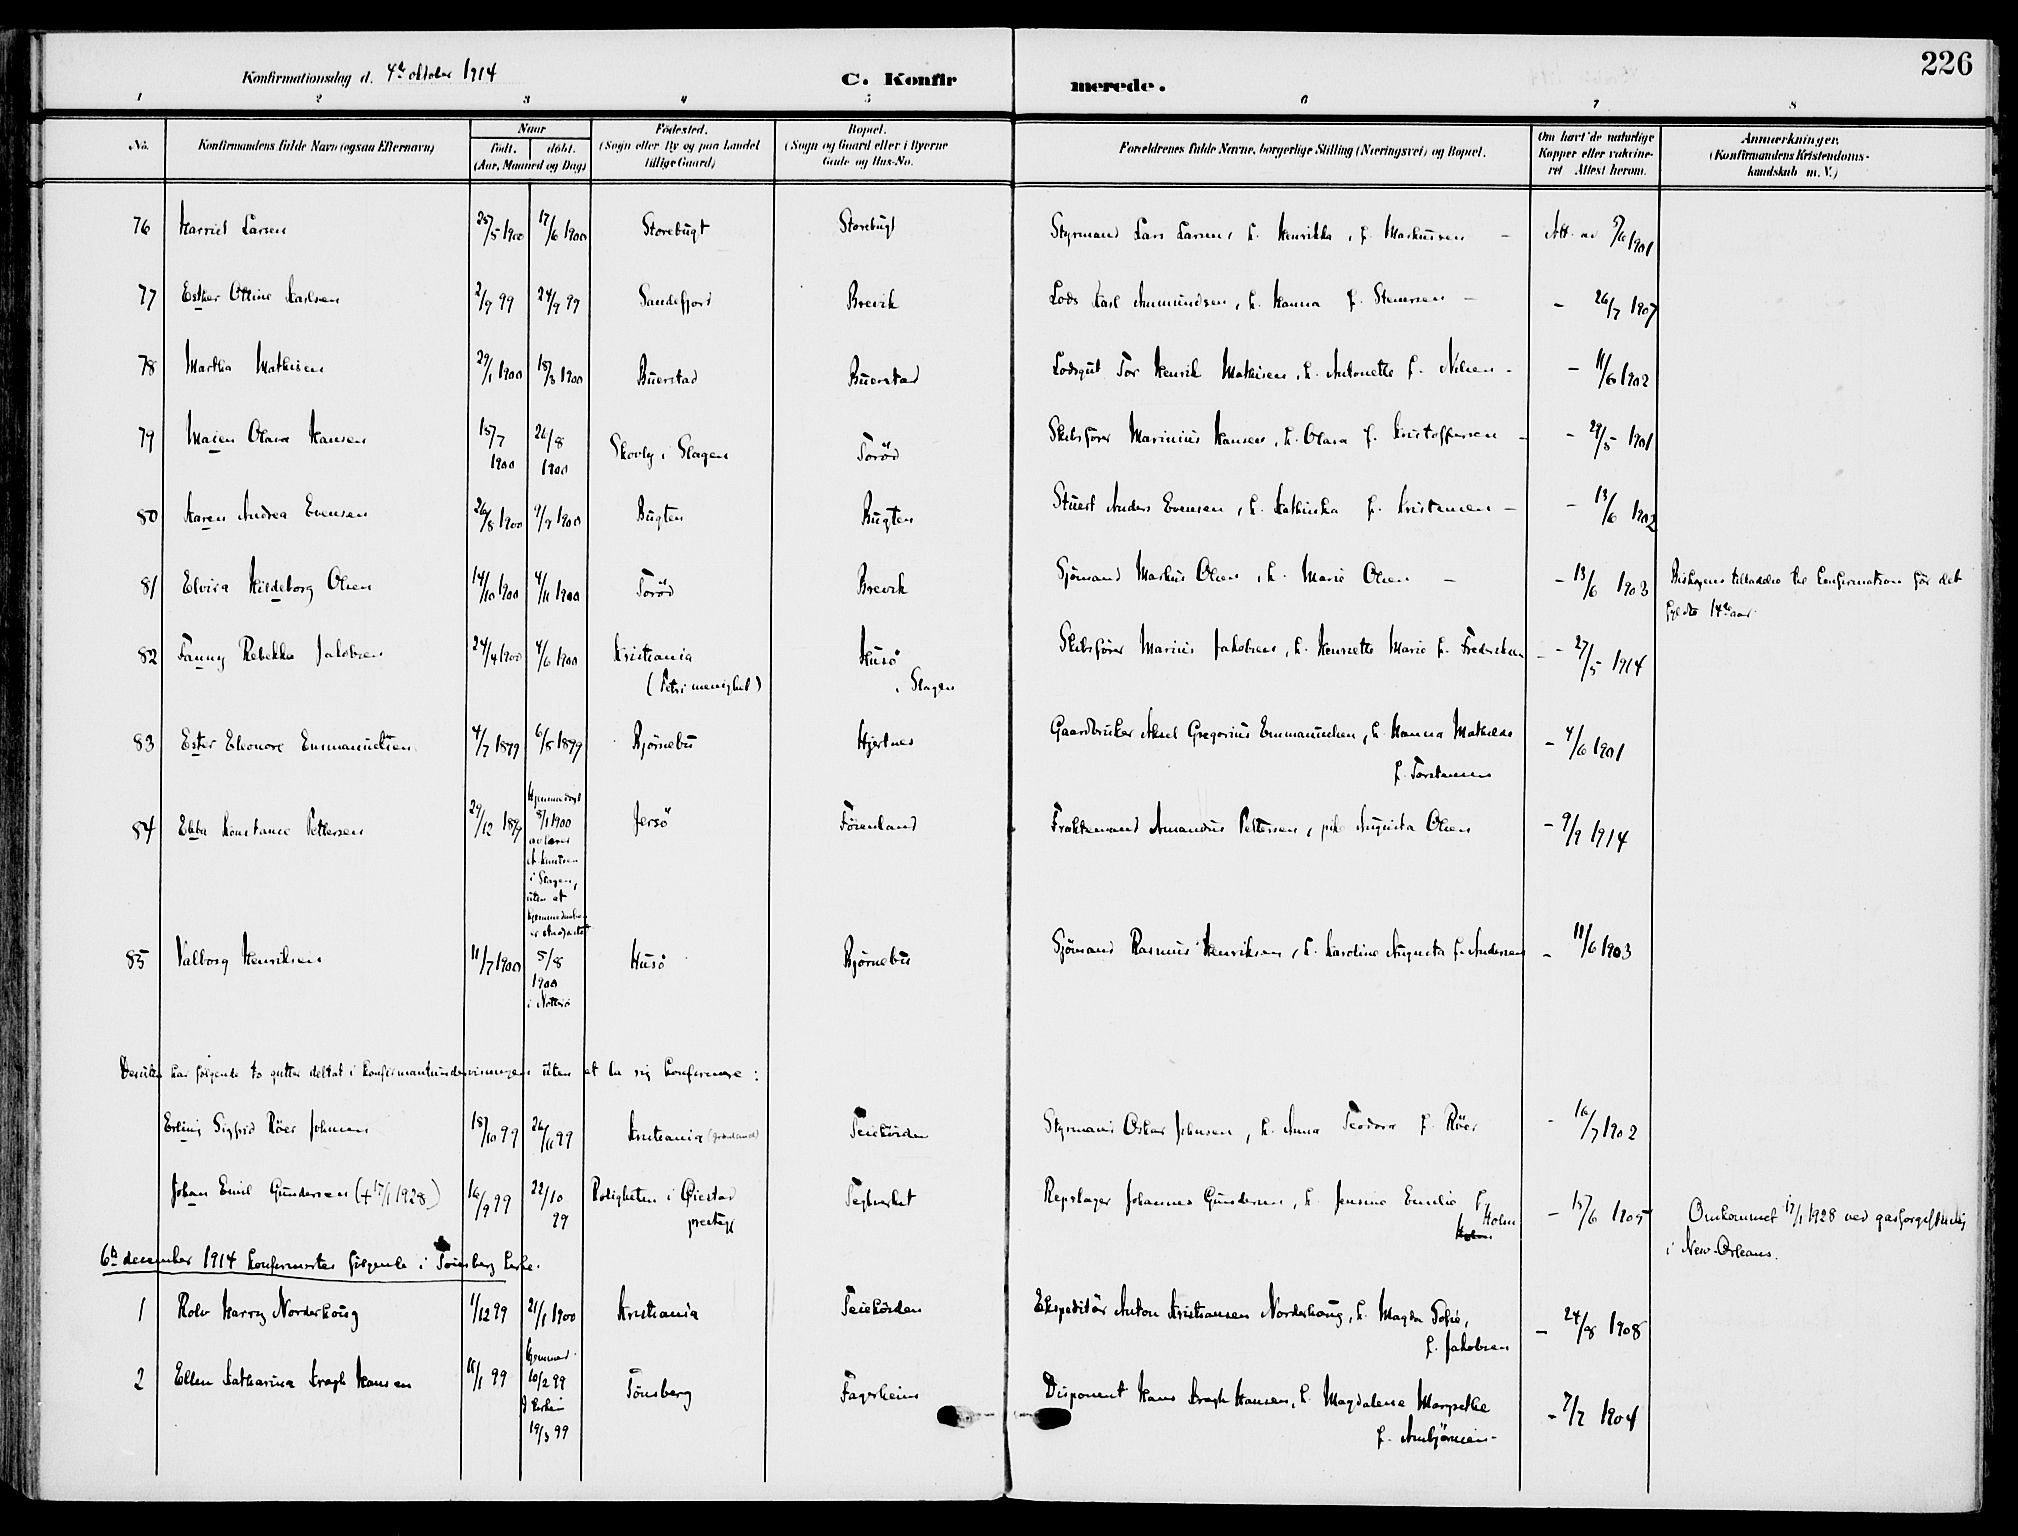 Konfirmationsdag d. 4de oktober 1914 C. Konfirmerede. 226
1 2 3 4 5 6 7 8
No. Konfirmandens fulde Navn (ogsaa Efternavn) Naar født. døbt. (Aar, Maaned og Dag) Fødested. (Sogn eller By og paa Landet tillige Gaard) Bopæl. (Sogn og Gaard eller i Byerne Gade og Hus-No. Forældrenes fulde Navne, borgerlige Stilling (Næringsvei) og Bopæl. Om havt de naturlige Kopper eller vakcineret Attest herom. Anmærkninger. (Konfirmandens Kristendomskundskab m. V.)
76 Harriet Larsen 25/5 1900 17/6 1900 Storebugt Storebugt Styrmand Lars Larsen, h. Henrikka, f. Markussen – Att. av 1901
77 Esther Otline Karlsen 2/9 99 24/9 99 Sandefjord Brevik Lods Karl Ammundsen, h. Hanna f. Stenersen – – 26/7 1907
78 Martha Mathisen 29/1 1900 18/3 1900 Buerstad Buerstad Lodsgut Tor Henrik Mathisen, h. Antonette f. Nilsen – – 11/6 1902
79 Maien Olava Hansen 15/7 1900 26/8 1900 Skovly i Slagen Torød Skibsfører Marinius Hansen, h. Olava f. Kristoffersen – – 29/5 1901
80 Karen Andrea Evensen 26/8 1900 9/9 1900 Bugten Bugten Stuert Anders Evensen, h. Kathinka f. Kristensen – – 13/6 1902
81 Elvira Hildeborg Olsen 14/10 1900 4/11 1900 Torød Brevik Sjømand Markus Olsen, h. Marie Olsen – – 13/6 1903 Biskopens tilladelse til konfirmation før det
fyldte 14de aar.
82 Fanny Rebekka Jakobsen 24/4 1900 4/6 1900 Kristiania Husø Skibsfører Marius Jakobsen, h. Henriette Marie f. Fredriksen – 27/5 1914
(Petri menighet) i Slagen
83 Ester Eleonore Emmanuelsen 4/7 1899 6/8 1899 Bjørnebu Hjertnes Gaardbruker Aksel Gregorius Emmanuelsen, h. Hanna Mathilde – 4/6 1901
f. Torstensen
84 Ebba Konstance Pettersen 29/12 1899 Hjemmedøpt
8/1 1900
av lærer
A. Knutsen
i Slagen,
uten at
hjemmedaaben
er stadfæstet Jersø Føienland Fraktemand Amandus Pettersen, pike Augusta Olsen – 9/9 1914
85 Valborg Henriksen 11/7 1900 5/8
1900
i Nøtterø Husø Bjørnebu Sjømand Rasmus Henriksen, h. Karoline Augusta f. Andersen – 11/6 1903
Desuten har følgende to gutter deltat i konfirmantundervisningen uten at la sig konfirmere:
Erling Sigfrid Röer Johnsen 18/10 99 26/11 99 Kristiania Teiehöiden Styrmand Oskar Johnsen, h. Anna Teodora f. Röer – 16/7 1902
Johan Emil Gundersen († 17/1 1928) 16/9 99 22/10
99 Roligheten i Øiestad
prestegj. Teglverket Repslager Johannes Gundersen, h. Jensine Emilie f.
Holm – 15/6 1905 Omkommet 17/1 1928 ved gasforgiftning
i New-Orleans.
6te december 1914 konfirmertes følgende i Tønsberg kirke.
1 Rolv Harry Norderhoug 1/12 99 21/1 1900 Kristiania Teiehöiden Ekspeditör Anton Kristiansen Norderhoug, h. Magda Sofie,
f. Jakobsen – 24/8 1908
2 Ellen Katharina Kragh Hansen 18/1 99 Hjemmed.
10/2 99
i kirken
19/3 99 Tönsberg Fagerheim Disponent Hans Kragh Hansen, h. Magdalena Margrethe
f. Ambjörnsen – – 7/7 1904